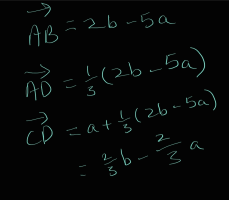 \overrightarrow{AB} = 2b - 5a
\overrightarrow{AD} = \frac{1}{3}(2b - 5a)
\overrightarrow{CD} = a + \frac{1}{3}(2b - 5a)
= \frac{2}{3}b - \frac{2}{3}a